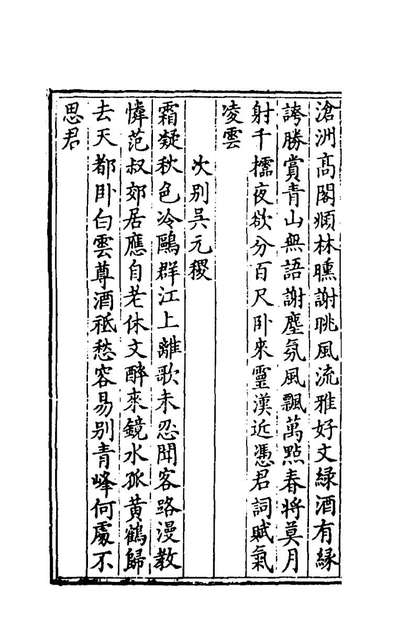 滄洲高閣順林曛謝眺風流雅好文緑酒有縁
誇勝賞青山無語謝塵氛風飄萬㸃春將莫月
射千檽夜欲分百尺卧来霊漢近憑君詞賦氣
凌雲
次别吴元稷
霜凝秋色冷鷗群江上離歌未忍聞客路漫教
憐范叔郊居應自老休文醉來鏡水孤黄鶴歸
去天都卧白雲尊酒秪愁容易别青峰何處不
思君